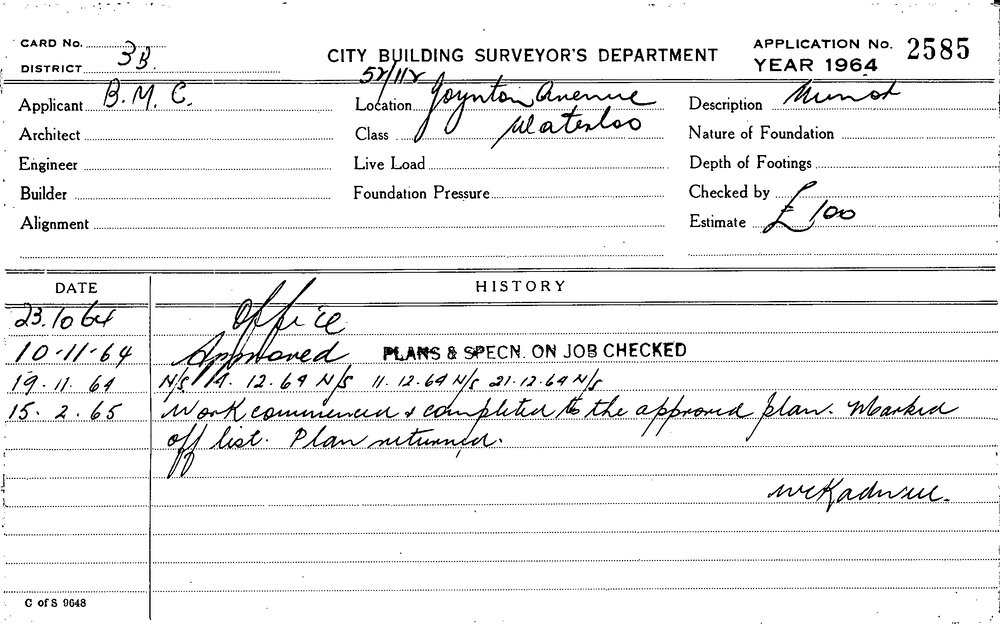 CARD No.
DISTRICT 3B.
CITY BUILDING SURVEYOR'S DEPARTMENT
APPLICATION No. 2585
YEAR 1964
Applicant B.M.C.
Architect
Engineer
Builder
Alignment
52/112
Location Joynton Avenue
Class Waterloo
Live Load
Foundation Pressure
Description
Nature of Foundation
Depth of Footings
Checked by
Estimate £100
DATE HISTORY
23.10 64 Office
10-11-64 Approved PLANS & SPECN. ON JOB CHECKED
19. 11. 64 N/S 4. 12. 64 N/S 11. 12. 64 N/S 21. 12. 64 N/S
15. 2. 65 Work commenced & completed to the approved plan. Marked
off list. Plan returned.
C of S 9648